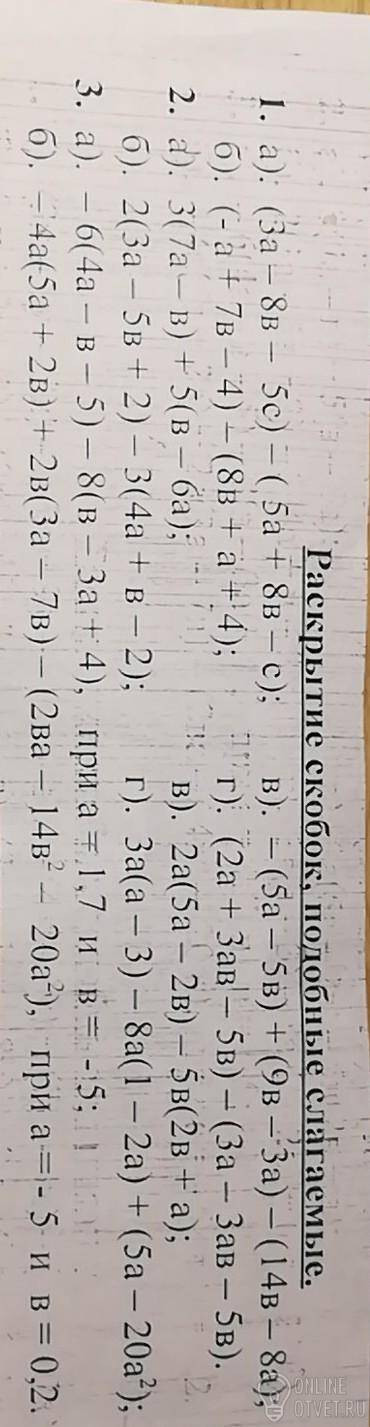 Раскрытие скобок, подобные слагаемые.
1. а). (3а – 8в – 5с) – ( 5а + 8в – с); в). – (5а – 5в) + (9в – 3а) – (14в – 8а);
б). (-а + 7в – 4) – (8в + а + 4); г). (2а + 3ав – 5в) – (3а – 3ав – 5в).
2. а). 3(7а – в) + 5(в – 6а); в). 2а(5а – 2в) – 5в(2в + а);
б). 2(3а – 5в + 2) – 3(4а + в – 2); г). 3а(а – 3) – 8а(1 – 2а) + (5а – 20а²);
3. а). – 6(4а – в – 5) – 8(в – 3а + 4), при а = 1,7 и в = - 5;
б). – 4а(5а + 2в) + 2в(3а – 7в) – (2ва – 14в² – 20а²), при а = - 5 и в = 0,2.
ONLINE
OTVET.RU